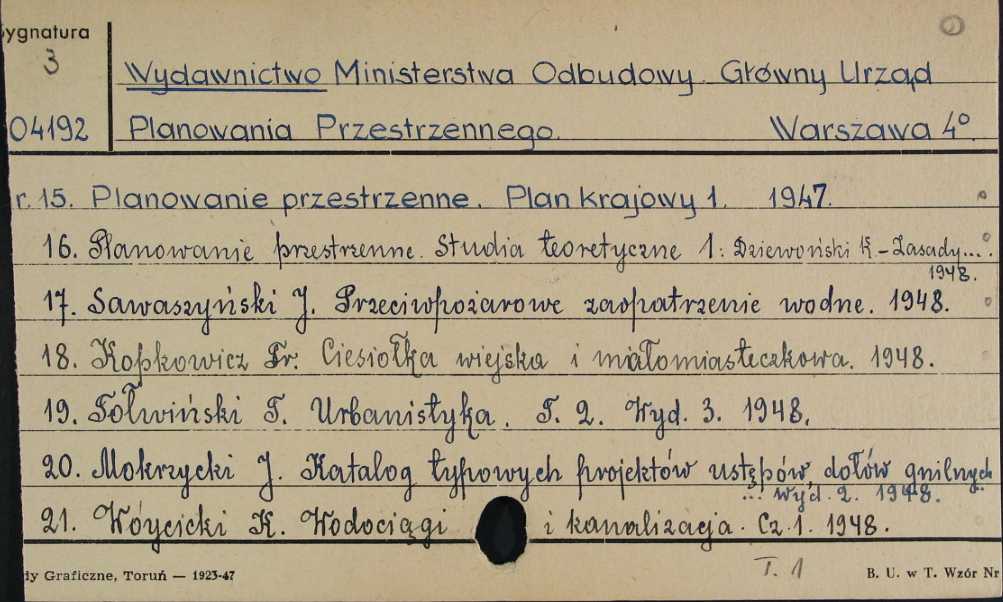 Sygnatura
3
Wydawnictwo Ministerstwa Odbudowy. Główny Urząd
04192 Planowania Przestrzennego. Warszawa 4°.
r. 15. Planowanie przestrzenne. Plan krajowy 1. 1947.
16. Planowanie przestrzenne. Studia teoretyczne 1: Dziewoński K - Zasady...
1948.
17. Sawaszyński J. Przeciwpożarowe zaopatrzenie wodne. 1948.
18. Kopkowicz Fr. Ciesiołka wiejska i małomiasteczkowa. 1948.
19. Tołwiński T. Urbanistyka. T. 2. Wyd. 3. 1948.
20. Mokrzycki J. Katalog typowych projektów ustępów, dołów gnilnych
... wyd. 2. 1948.
21. Wóycicki K. Wodociągi i kanalizacja. Cz. 1. 1948.
T. 1
dy Graficzne, Toruń — 1923-47 B. U. w T. Wzór Nr